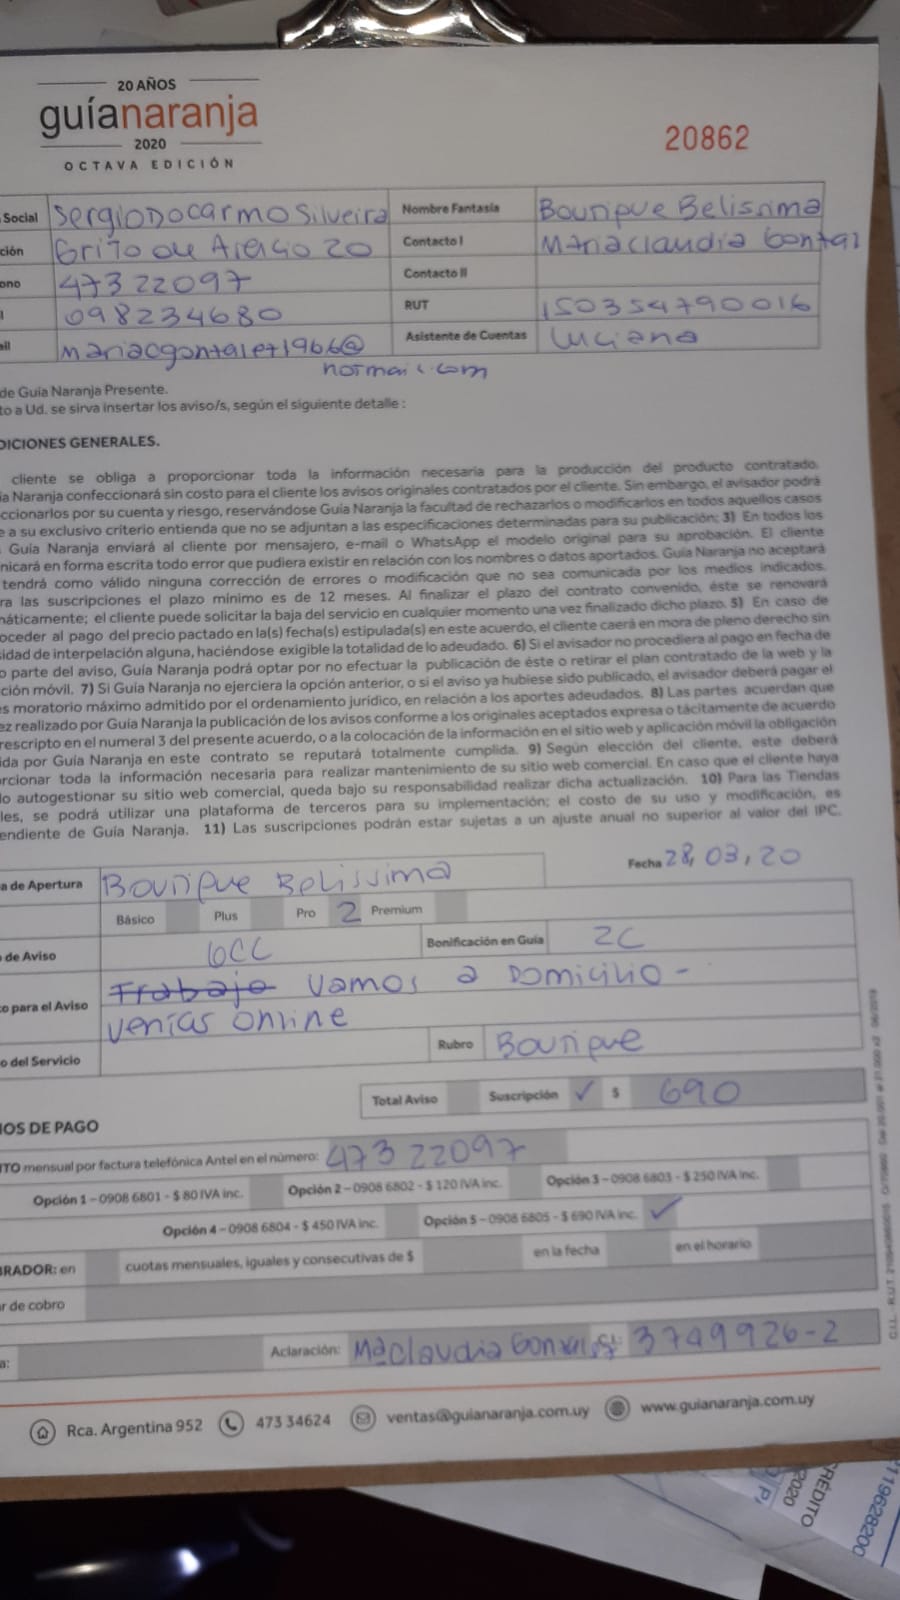 20 AÑOS
guíanaranja
2020
OCTAVA EDICIÓN
20862
Social Sergio Docarmo Silveira Nombre Fantasía Boutique Belissima
ción Grito de Asencio 20 Contacto I Maria Claudia Gonzal
ono 473 22097 Contacto II
l 098234680 RUT 150354790016
il mariacgonzalez1966@ Asistente de Cuentas Luciana
hotmail.com
de Guía Naranja Presente.
to a Ud. se sirva insertar los aviso/s, según el siguiente detalle :
DICIONES GENERALES.
cliente se obliga a proporcionar toda la información necesaria para la producción del producto contratado.
ía Naranja confeccionará sin costo para el cliente los avisos originales contratados por el cliente. Sin embargo, el avisador podrá
ccionarlos por su cuenta y riesgo, reservándose Guía Naranja la facultad de rechazarlos o modificarlos en todos aquellos casos
e a su exclusivo criterio entienda que no se adjuntan a las especificaciones determinadas para su publicación; 3) En todos los
Guía Naranja enviará al cliente por mensajero, e-mail o WhatsApp el modelo original para su aprobación. El cliente
nicará en forma escrita todo error que pudiera existir en relación con los nombres o datos aportados. Guía Naranja no aceptará
tendrá como válido ninguna corrección de errores o modificación que no sea comunicada por los medios indicados.
ra las suscripciones el plazo mínimo es de 12 meses. Al finalizar el plazo del contrato convenido, éste se renovará
máticamente; el cliente puede solicitar la baja del servicio en cualquier momento una vez finalizado dicho plazo. 5) En caso de
oceder al pago del precio pactado en la(s) fecha(s) estipulada(s) en este acuerdo, el cliente caerá en mora de pleno derecho sin
sidad de interpelación alguna, haciéndose exigible la totalidad de lo adeudado. 6) Si el avisador no procediera al pago en fecha de
o parte del aviso, Guía Naranja podrá optar por no efectuar la publicación de éste o retirar el plan contratado de la web y la
ción móvil. 7) Si Guía Naranja no ejerciera la opción anterior, o si el aviso ya hubiese sido publicado, el avisador deberá pagar el
s moratorio máximo admitido por el ordenamiento jurídico, en relación a los aportes adeudados. 8) Las partes acuerdan que
ez realizado por Guía Naranja la publicación de los avisos conforme a los originales aceptados expresa o tácitamente de acuerdo
rescripto en el numeral 3 del presente acuerdo, o a la colocación de la información en el sitio web y aplicación móvil la obligación
ida por Guía Naranja en este contrato se reputará totalmente cumplida. 9) Según elección del cliente, este deberá
orcionar toda la información necesaria para realizar mantenimiento de su sitio web comercial. En caso que el cliente haya
do autogestionar su sitio web comercial, queda bajo su responsabilidad realizar dicha actualización. 10) Para las Tiendas
les, se podrá utilizar una plataforma de terceros para su implementación; el costo de su uso y modificación, es
endiente de Guía Naranja. 11) Las suscripciones podrán estar sujetas a un ajuste anual no superior al valor del IPC.
Fecha 28, 03, 20
a de Apertura Boutique Belissima
Básico Plus Pro 2 Premium
de Aviso 6CC Bonificación en Guía 2C
o para el Aviso Trabajo Vamos a Domicilio -
Ventas Online
o del Servicio Rubro Boutique
Total Aviso Suscripción ✓ $ 690
IOS DE PAGO
ITO mensual por factura telefónica Antel en el número: 473 22097
Opción 1 - 0908 6801 - $ 80 IVA inc. Opción 2 - 0908 6802 - $ 120 IVA inc. Opción 3 - 0908 6803 - $ 250 IVA inc.
Opción 4 - 0908 6804 - $ 450 IVA inc. Opción 5 - 0908 6805 - $ 690 IVA inc. ✓
BRADOR: en cuotas mensuales, iguales y consecutivas de $ en la fecha en el horario
r de cobro
a: Aclaración: Ma Claudia C.I.: 3749926-2
Rca. Argentina 952 473 34624 ventas@guianaranja.com.uy www.guianaranja.com.uy
2020
CRÉDITO